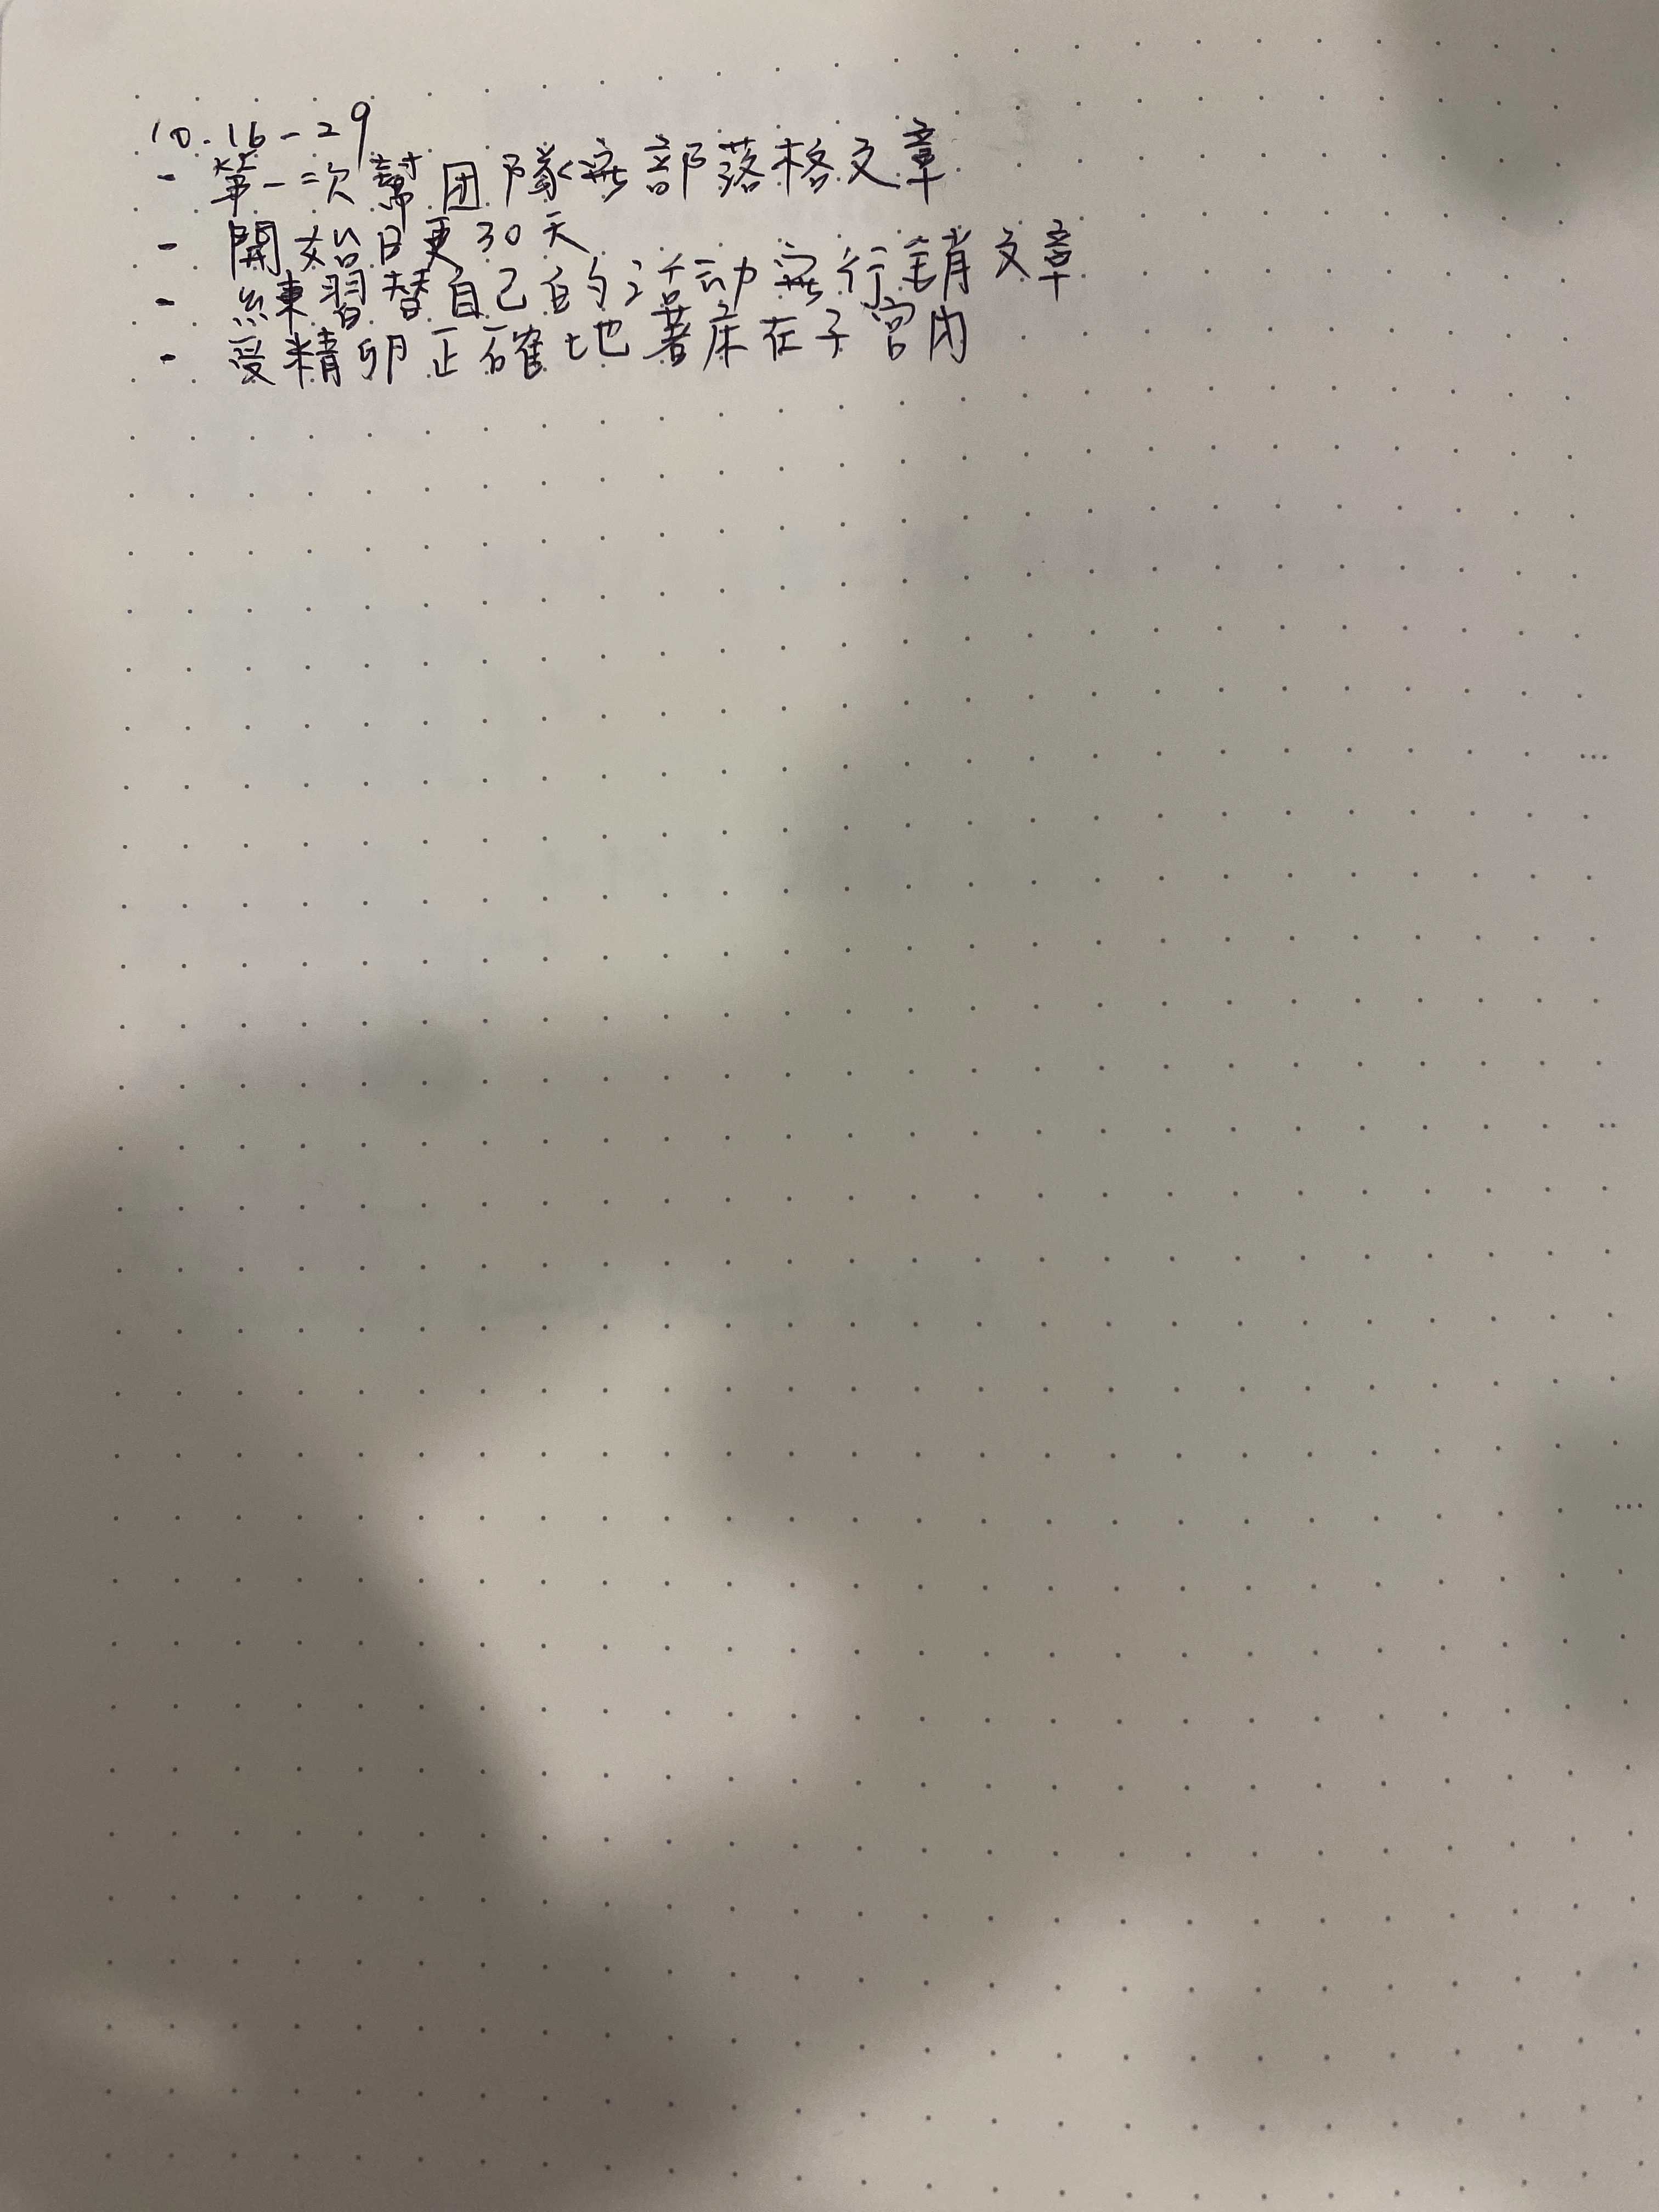 10.16-29
- 第一次幫团隊寫部落格文章
- 開始日更30天
- 練習替自己的活动寫行銷文章
- 受精卵正確地著床在子宮內